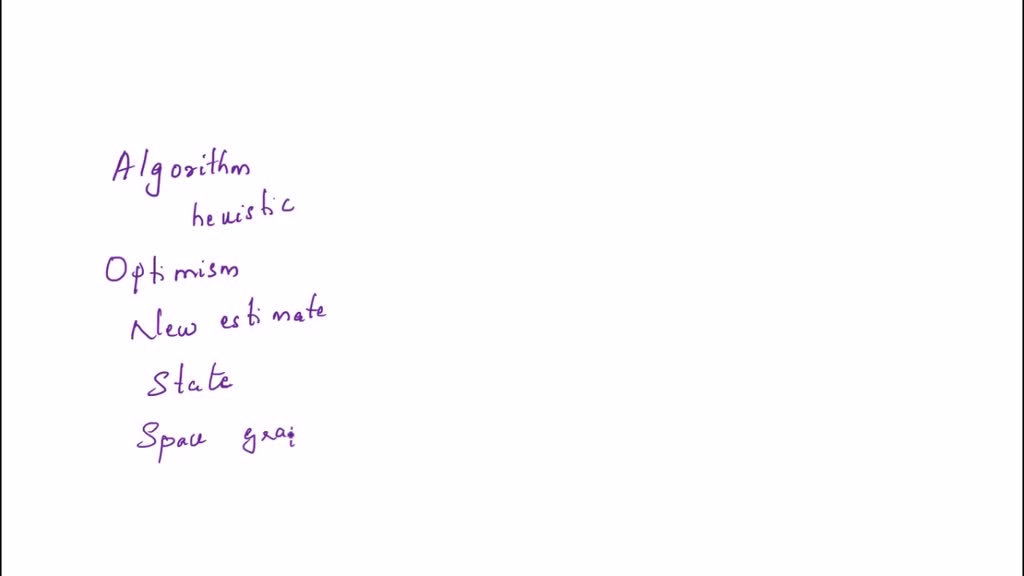 Algorithm
heuistic
Optimism
New estimate
State
Space gra